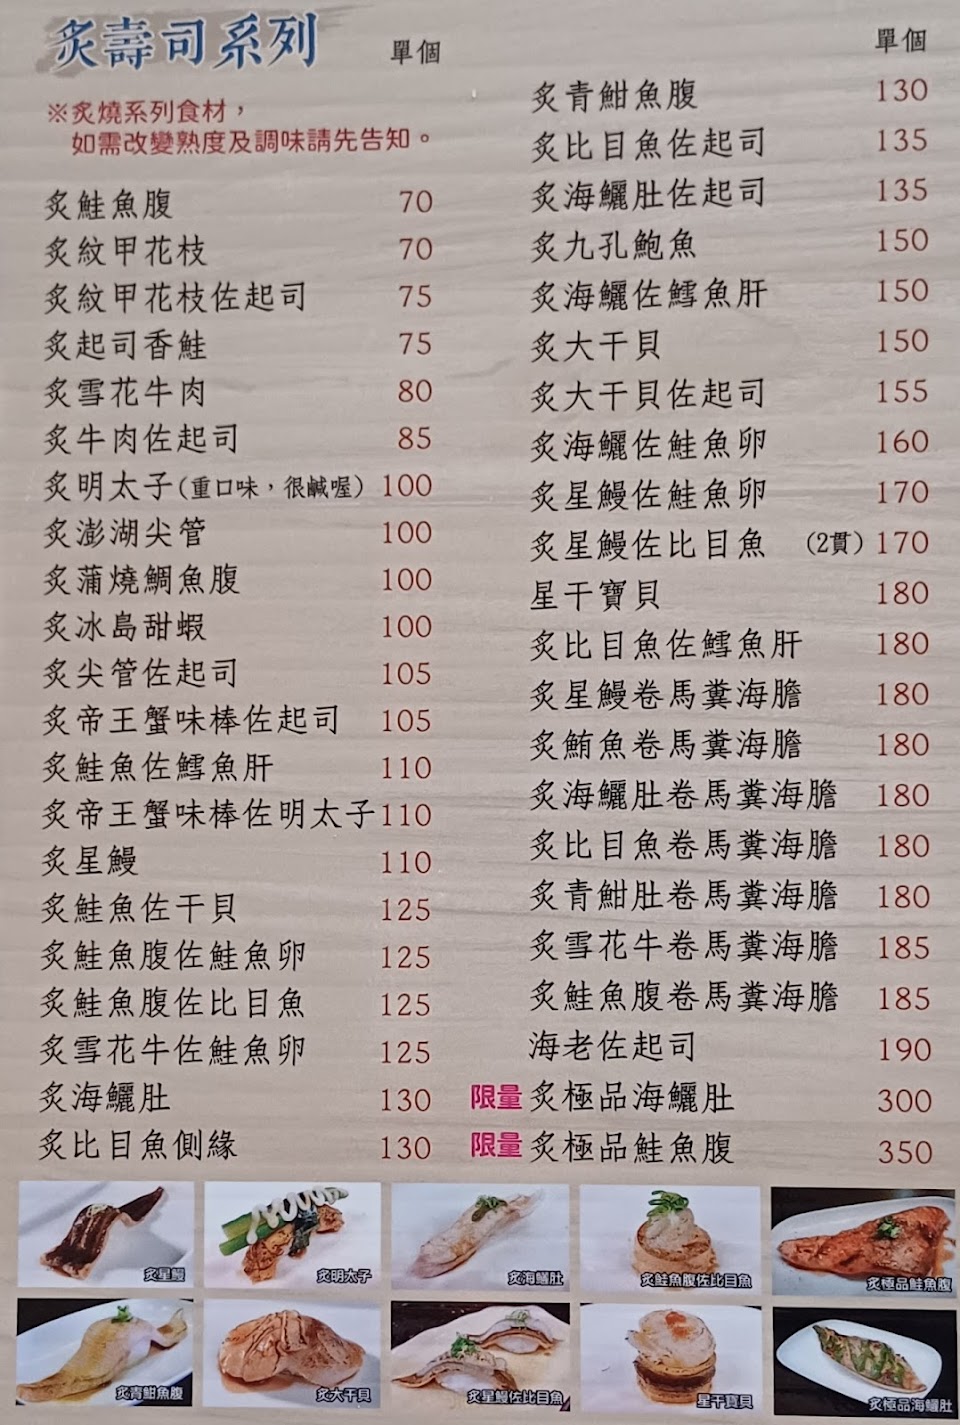 炙壽司系列 單個
※炙燒系列食材，
如需改變熟度及調味請先告知。
炙鮭魚腹 70
炙紋甲花枝 70
炙紋甲花枝佐起司 75
炙起司香鮭 75
炙雪花牛肉 80
炙牛肉佐起司 85
炙明太子(重口味，很鹹喔) 100
炙澎湖尖管 100
炙蒲燒鯛魚腹 100
炙冰島甜蝦 100
炙尖管佐起司 105
炙帝王蟹味棒佐起司 105
炙鮭魚佐鱈魚肝 110
炙帝王蟹味棒佐明太子 110
炙星鰻 110
炙鮭魚佐干貝 125
炙鮭魚腹佐鮭魚卵 125
炙鮭魚腹佐比目魚 125
炙雪花牛佐鮭魚卵 125
炙海鱺肚 130
炙比目魚側緣 130
單個
炙青魽魚腹 130
炙比目魚佐起司 135
炙海鱺肚佐起司 135
炙九孔鮑魚 150
炙海鱺佐鱈魚肝 150
炙大干貝 150
炙大干貝佐起司 155
炙海鱺佐鮭魚卵 160
炙星鰻佐鮭魚卵 170
炙星鰻佐比目魚 (2貫) 170
星干寶貝 180
炙比目魚佐鱈魚肝 180
炙星鰻卷馬糞海膽 180
炙鮪魚卷馬糞海膽 180
炙海鱺肚卷馬糞海膽 180
炙比目魚卷馬糞海膽 180
炙青魽肚卷馬糞海膽 180
炙雪花牛卷馬糞海膽 185
炙鮭魚腹卷馬糞海膽 185
海老佐起司 190
限量 炙極品海鱺肚 300
限量 炙極品鮭魚腹 350
炙星鰻
炙明太子
炙海鱺肚
炙鮭魚腹佐比目魚
炙極品鮭魚腹
炙青魽魚腹
炙大干貝
炙星鰻佐比目魚
星干寶貝
炙極品海鱺肚